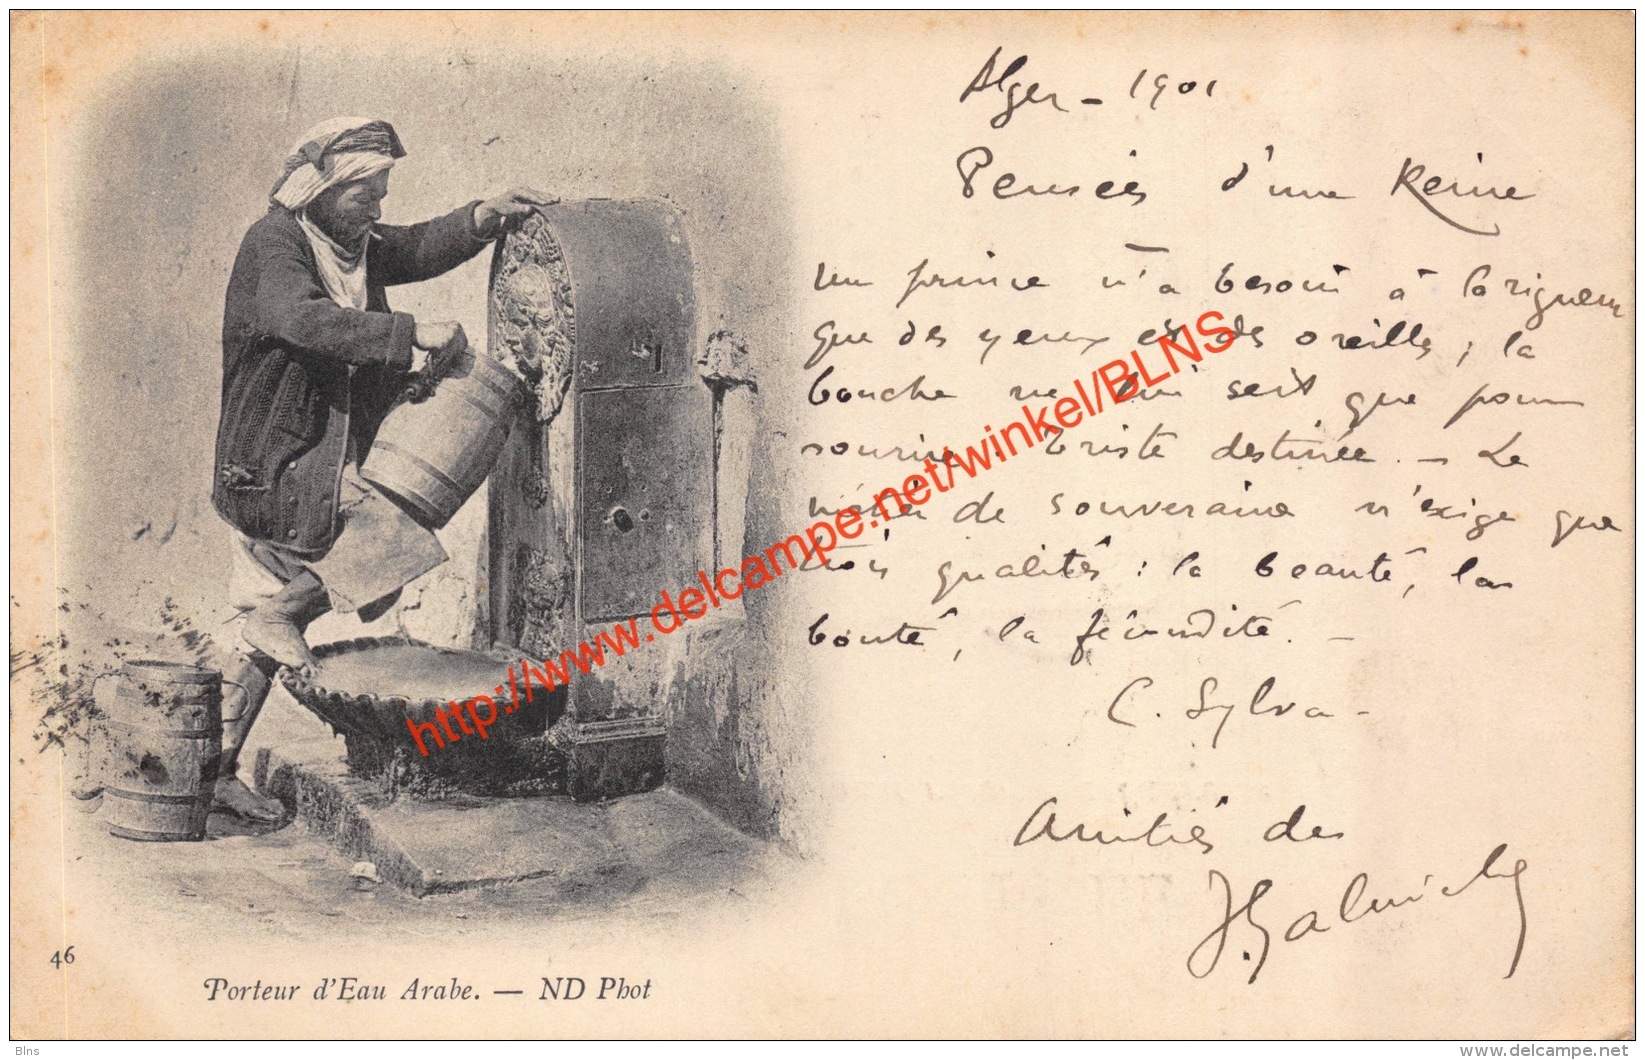 Alger - 1901
Pensées d'une Reine
Un prince n'a besoin à la rigueur
que des yeux et des oreilles ; la
bouche ne lui sert que pour
sourire. Triste destinée. - Le
métier de souveraine n'exige que
trois qualités : la beauté, la
bonté, la fécondité. -
C. Sylva -
Amitiés de
46
Porteur d'Eau Arabe. — ND Phot
http://www.delcampe.net/winkel/BLNS
Blns
delcampe.net